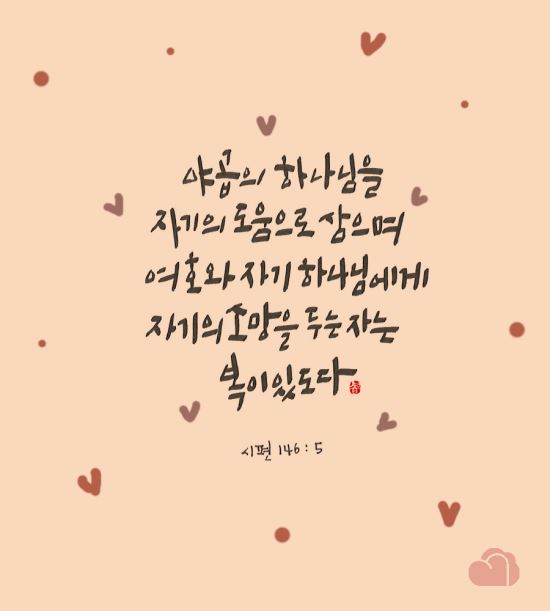 야곱의 하나님을
자기의 도움으로 삼으며
여호와 자기 하나님에게
자기의 소망을 두는 자는
복이 있도다
시편 146 : 5